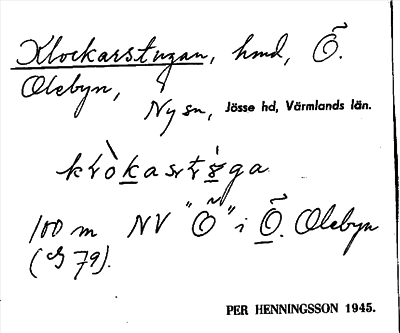 Klockarstugan, hmd, Õ.
Olebyn,
Ny sn, Jösse hd, Värmlands län.
100 m NV "Õ" i Õ. Olebyn
PER HENNINGSSON 1945.